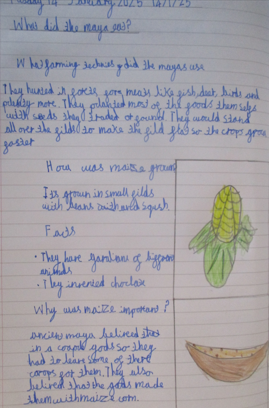 Tuesday 14 January 2025 14/1/25
What did the maya eat?
What farming technology did the mayas use
They hunted in forests for meats like fish, deer, birds and
plenty more. They planted most of the foods them selfs
with seeds they traded or found They would stand
all over the filds to make the fild flat so the crops grow
easter
How was maize grown
Its grown in small filds
with beans and squash
Facts
• They have gardians of different
animals
• They invented choclate
Why was maize important?
ancient maya belived
in a corps gods so they
had to leave some of there
corops for them. They also
belived that the gods made
them with maize corn.